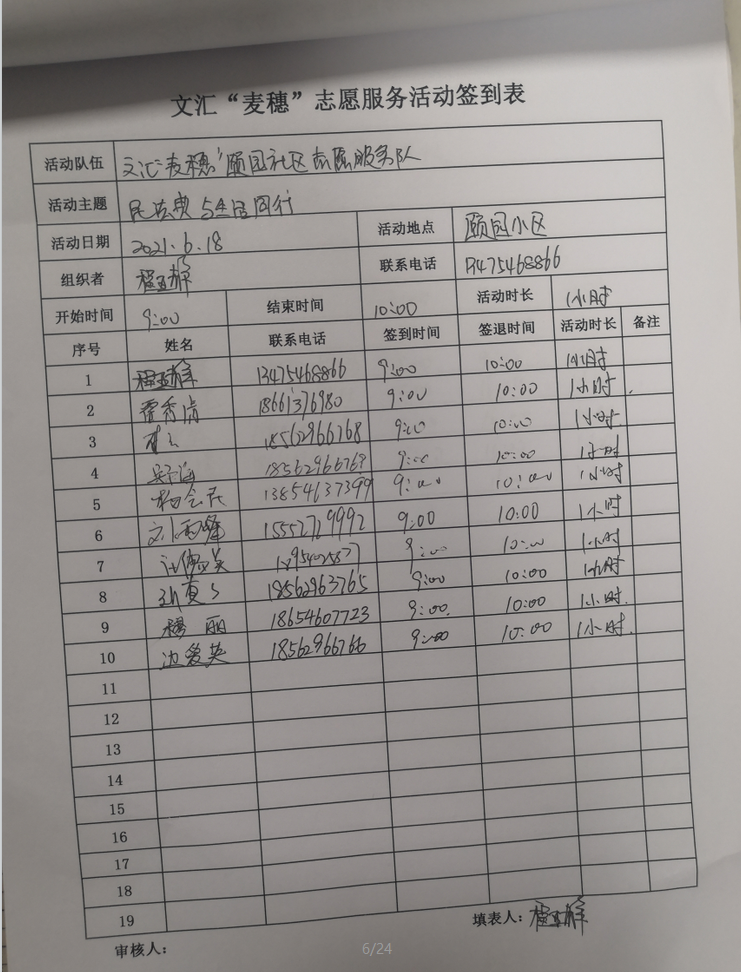 文汇“麦穗”志愿服务活动签到表
活动队伍 文汇“麦穗”颐园社区志愿服务队
活动主题 民法典 与生活同行
活动日期 2021.6.18 活动地点 颐园小区
组织者 联系电话 13475468866
开始时间 9:00 结束时间 10:00 活动时长 1小时
序号 姓名 联系电话 签到时间 签退时间 活动时长 备注
1 13475468866 9:00 10:00 1小时
2 18661376980 9:00 10:00 1小时
3 18562966768 9:00 10:00 1小时
4 18562966769 9:00 10:00 1小时
5 13854637399 9:00 10:00 1小时
6 15552729992 9:00 10:00 1小时
7 9:00 10:00 1小时
8 18562963765 9:00 10:00 1小时
9 穆丽 18654607723 9:00 10:00 1小时
10 沈爱英 18562966766 9:00 10:00 1小时
11
12
13
14
15
16
17
18
19
审核人： 填表人：
6/24